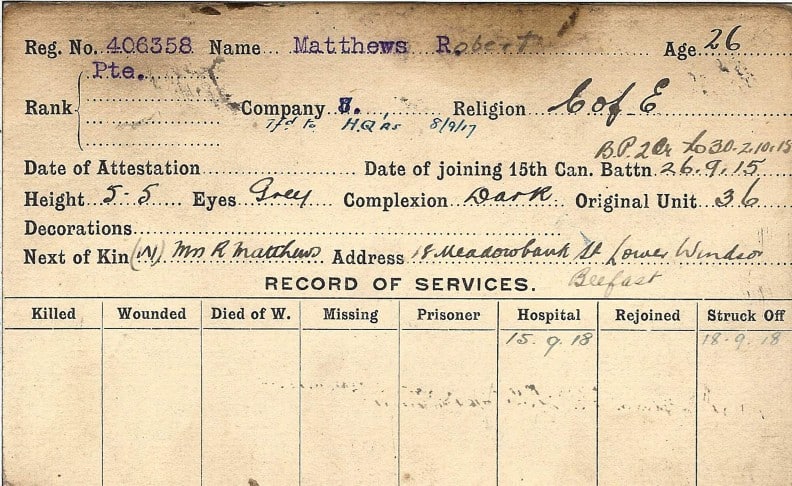 Reg. No. 406358 Name Matthews R.obert Age 26
Pte.
Rank Company Religion C of E
Tfd to H.Qrs 8/9/17
B.P. 2 Cr to 30. 2.10.15
Date of Attestation Date of joining 15th Can. Battn. 26.9.15
Height 5-5 Eyes Grey Complexion Dark Original Unit 36
Decorations
Next of Kin (W) Mrs R Matthews Address 18 Meadowbank St Lower Windsor
Belfast
RECORD OF SERVICES.
Killed Wounded Died of W. Missing Prisoner Hospital Rejoined Struck Off
15.9.18 18.9.18